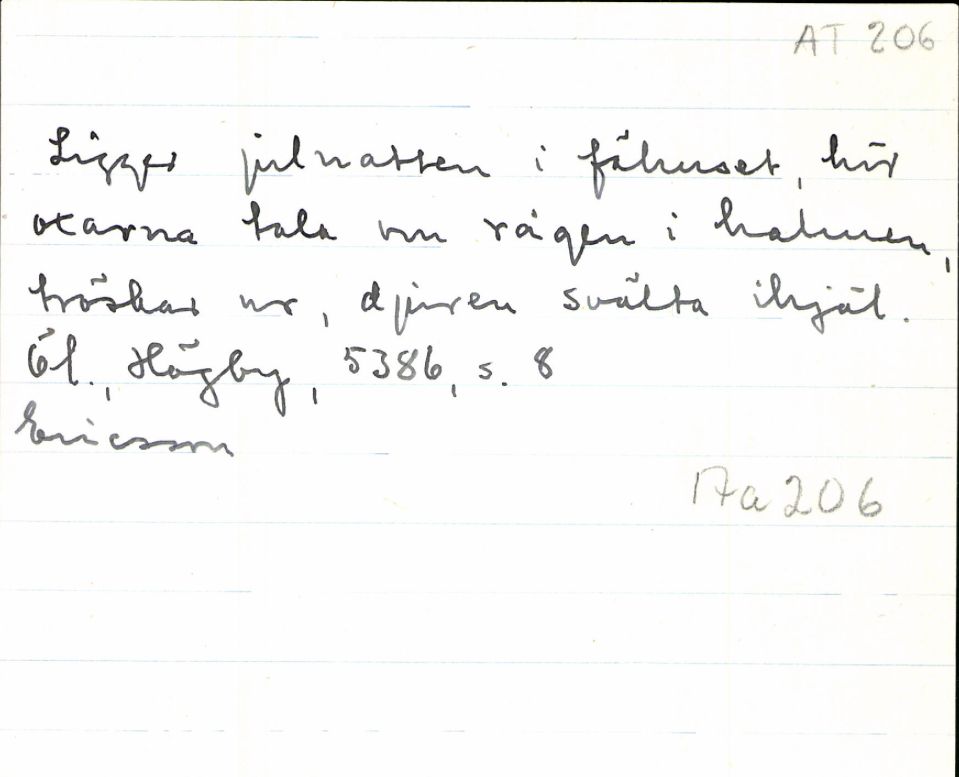 AT 206
Ligger julnatten i fähuset, hör
oxarna tala om rågen i halmen,
tröskar ur, djuren svälta ihjäl.
Öl., Högby, 5386, s. 8
Ericsson
17a 206